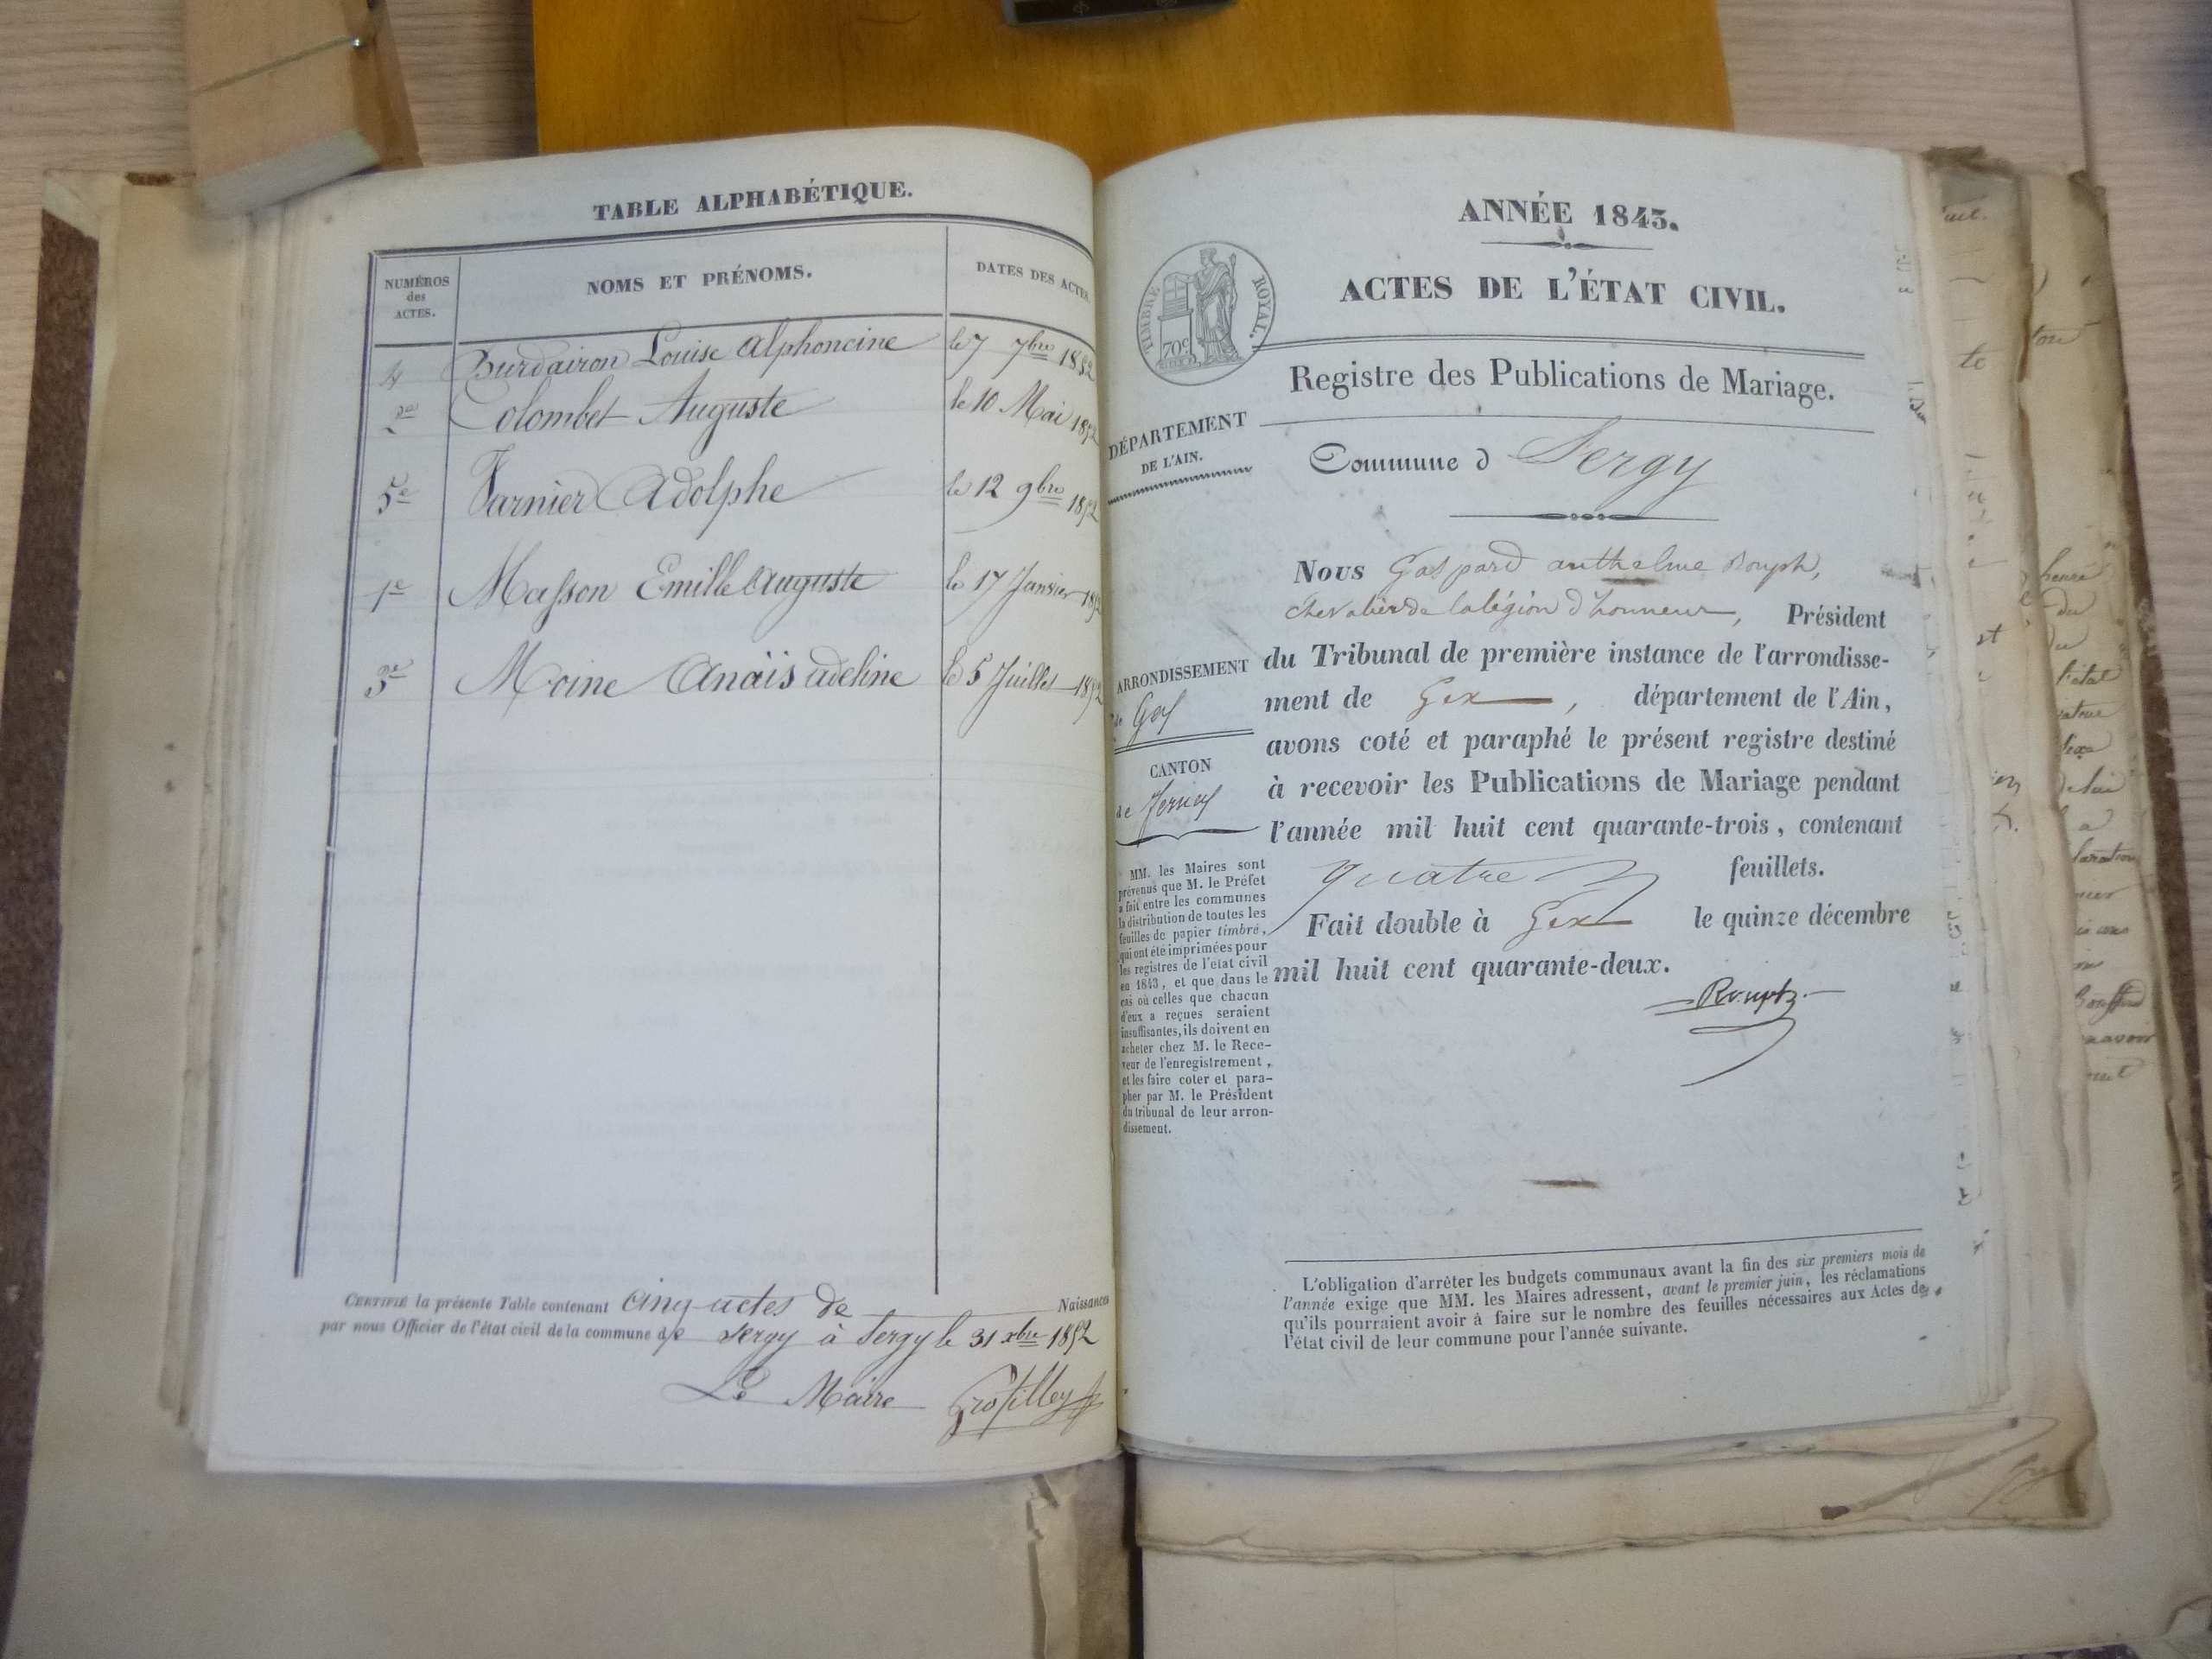 TABLE ALPHABÉTIQUE.
NUMÉROS
des
ACTES.
NOMS ET PRÉNOMS.
DATES DES ACTES
4 Burdairon Louise Alphoncine le 7 7bre 1852
2e Colombet Auguste le 10 Mai 1852
5e Varnier Adolphe le 12 9bre 1852
1e Masson Emille Auguste le 17 Janvier 1852
3e Moine Anaïs Adeline le 5 Juillet 1852
CERTIFIÉ la présente Table contenant cinq actes de Naissances
par nous Officier de l'état civil de la commune de Sergy à Sergy le 31 xbre 1852
Le Maire
ANNÉE 1843.
ACTES DE L'ÉTAT CIVIL.
TIMBRE ROYAL.
70c
Registre des Publications de Mariage.
DÉPARTEMENT
DE L'AIN.
Commune d Sergy
Nous Gaspard anthelme Rouph,
chevalier de la légion d'honneur, Président
du Tribunal de première instance de l'arrondisse-
ment de Gex, département de l'Ain,
avons coté et paraphé le présent registre destiné
à recevoir les Publications de Mariage pendant
l'année mil huit cent quarante-trois, contenant
quatre feuillets.
Fait double à Gex le quinze décembre
mil huit cent quarante-deux.
Rouph
ARRONDISSEMENT
de Gex
CANTON
de
MM. les Maires sont
prévenus que M. le Préfet
a fait entre les communes
la distribution de toutes les
feuilles de papier timbré,
qui ont été imprimées pour
les registres de l'état civil
en 1843, et que dans le
cas où celles que chacun
d'eux a reçues seraient
insuffisantes, ils doivent en
acheter chez M. le Rece-
veur de l'enregistrement,
et les faire coter et para-
pher par M. le Président
du tribunal de leur arron-
dissement.
L'obligation d'arrêter les budgets communaux avant la fin des six premiers mois de
l'année exige que MM. les Maires adressent, avant le premier juin, les réclamations
qu'ils pourraient avoir à faire sur le nombre des feuilles nécessaires aux Actes de
l'état civil de leur commune pour l'année suivante.